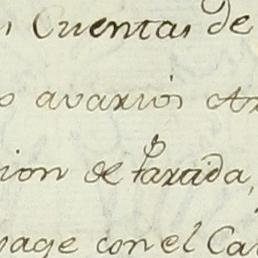 Cuentas de
avarios
ion de partida,
page con el Ca